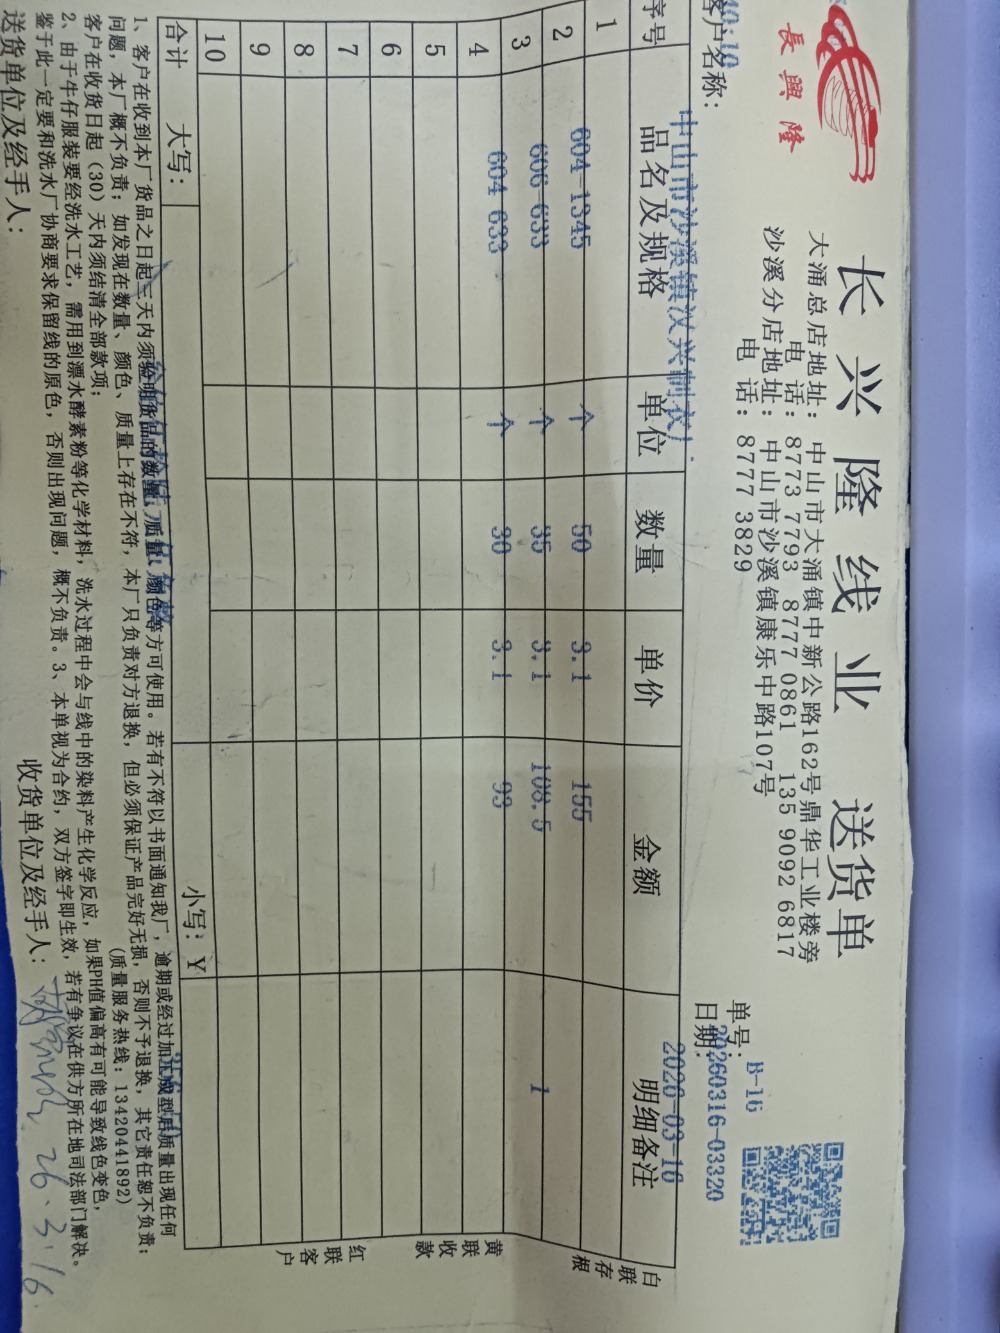 長興隆
长兴隆线业 送货单
大涌总店地址：中山市大涌镇中新公路162号鼎华工业楼旁
电 话：8773 7793 8777 0861 135 9092 6817
沙溪分店地址：中山市沙溪镇康乐中路107号
电 话：8777 3829
单号：B-16
20260316-03320
10:10
客户名称：
日期：
中山市沙溪镇汉兴制衣厂
2026-03-16
序号 品名及规格 单位 数量 单价 金额 明细备注
1 604-1345 个 50 3.1 155
2 606-633 个 35 3.1 108.5 1
3 604 633 个 30 3.1 93
4
5
6
7
8
9
10
合计 大写： 小写：￥
白联存根
黄联收款
红联客户
1、客户在收到本厂货品之日起三天内须验明货品的数量、质量、颜色等方可使用。若有不符以书面通知我厂，逾期或经过加工成型后质量出现任何
问题，本厂概不负责；如发现在数量、颜色、质量上存在不符，本厂只负责对方退换，但必须保证产品完好无损，否则不予退换，其它责任恕不负责；
客户在收货日起（30）天内须结清全部款项；
(质量服务热线：13420441892)
2、由于牛仔服装要经洗水工艺，需用到漂水酵素粉等化学材料，洗水过程中会与线中的染料产生化学反应，如果PH值偏高有可能导致线色变色，
鉴于此一定要和洗水厂协商要求保留线的原色，否则出现问题，概不负责。3、本单视为合约，双方签字即生效，若有争议在供方所在地司法部门解决。
送货单位及经手人：
收货单位及经手人：
26.3.16.